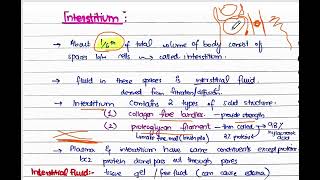 Interstitium:
→ About 1/6th of total volume of body consist of
spaces b/w cells → called interstitium.
→ fluid in these spaces is interstitial fluid.
derived from filtration/diffusion.
→ Interstitium contains 2 types of solid structure.
(1) collagen fibre bundles – provide strength
(2) proteoglycan filament – thin coiled → 98%
hyaluronic acid
2% protein
→ Plasma & interstitium have same constituents except proteins
bcz protein does not pass out through pores
Interstitial Fluid:- tissue gel / free fluid (can cause edema)